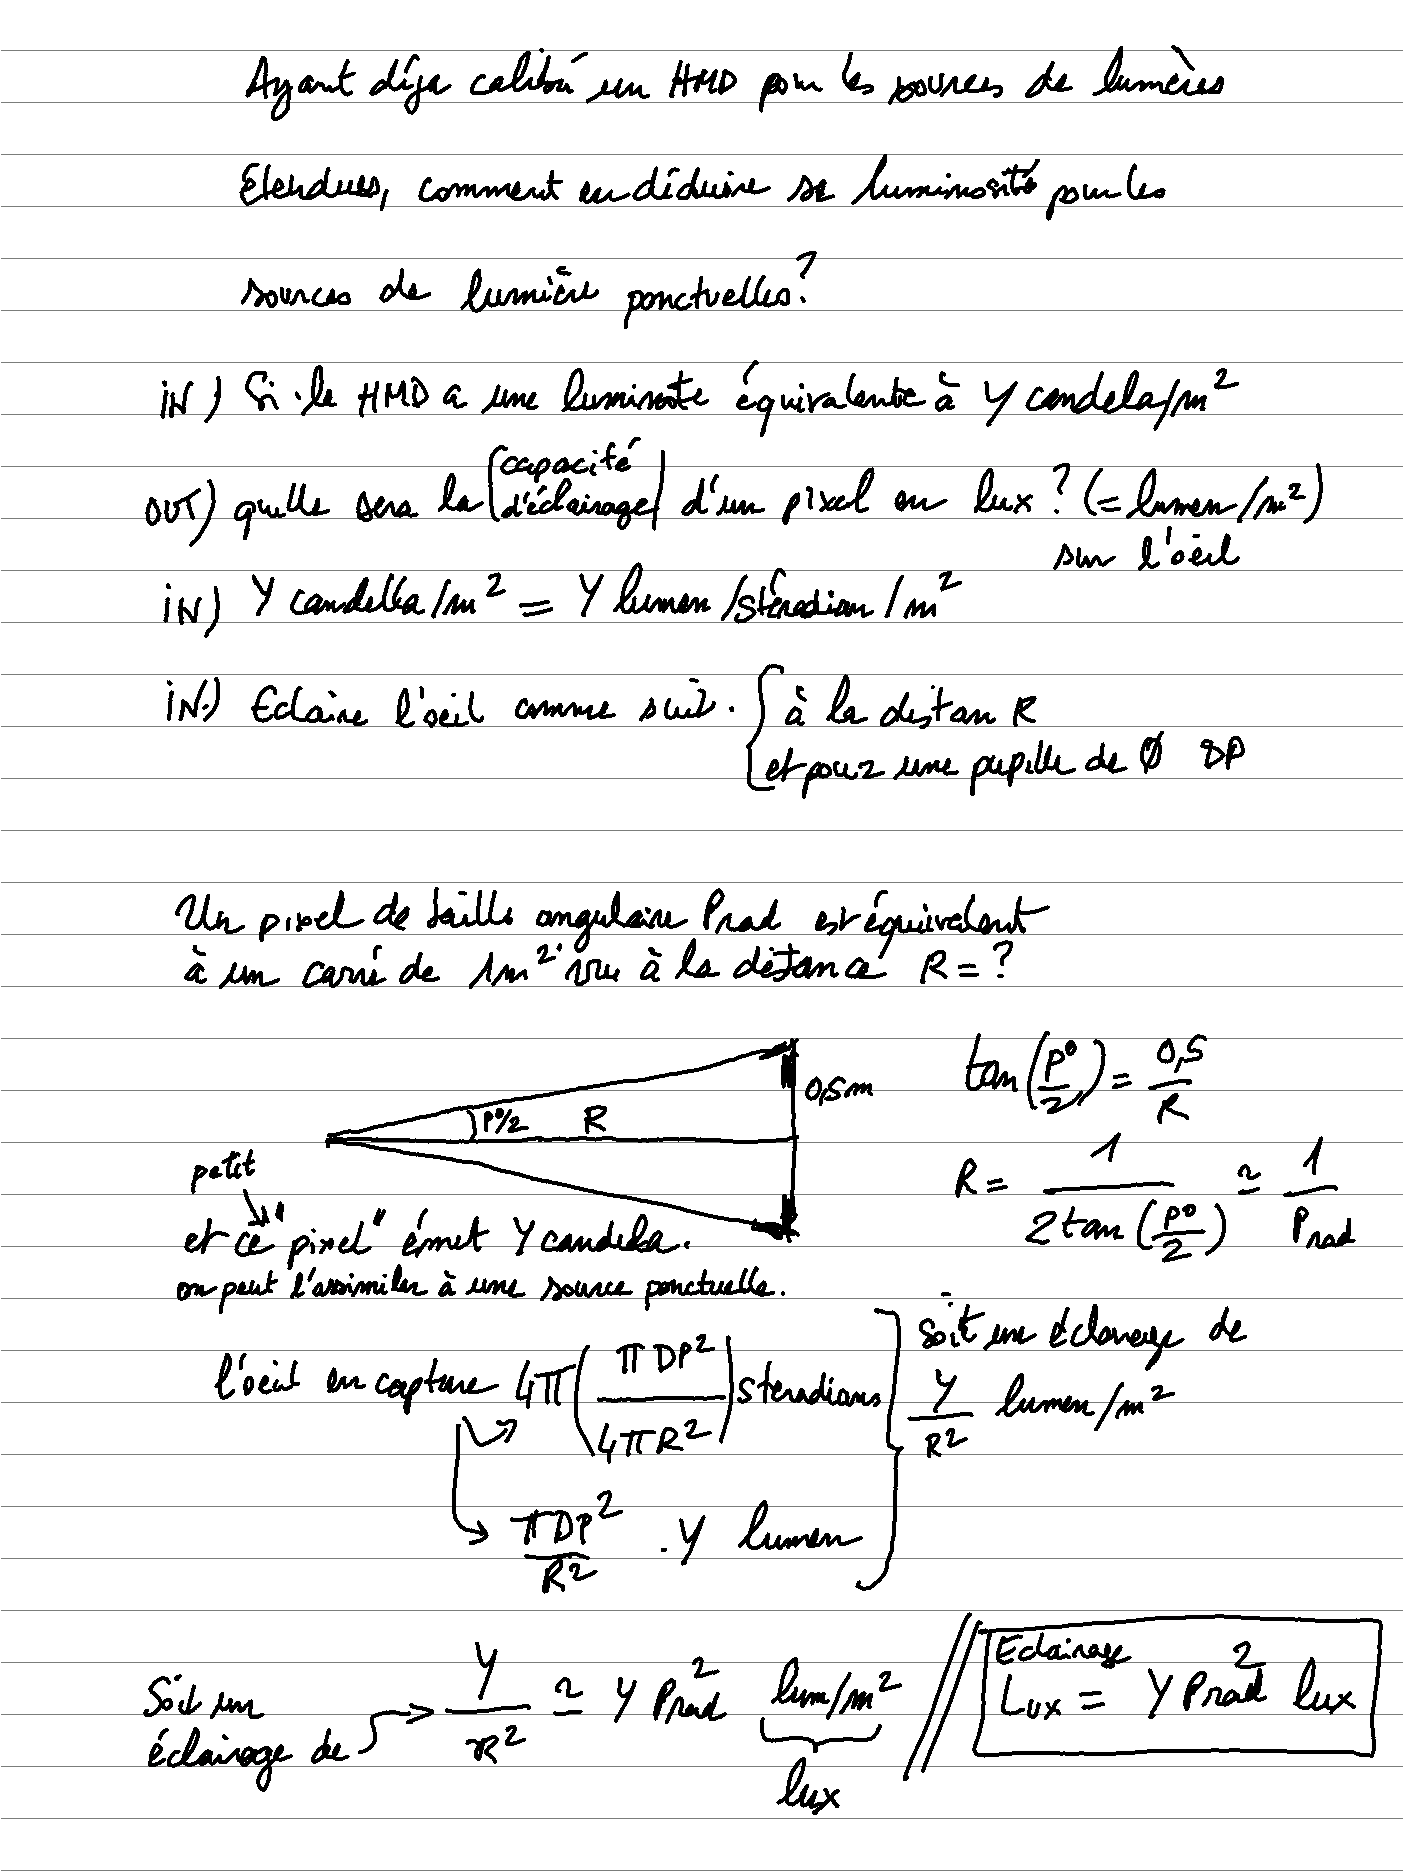 Ayant déja calibré un HMD pour les sources de lumères
Etendues, comment en déduire sa luminosité pour les
sources de lumière ponctuelles?
iN) Si le HMD a une luminosite équivalente à Y candela/m²
OUT) quelle sera la (capacité d'éclairage) d'un pixel en lux? (= lumen/m²)
sur l'oeil
iN) Y candella/m² = Y lumen/stéradian/m²
iN.) Eclaire l'oeil comme suit. { à la distan R
et pour une pupille de Ø DP
Un pixel de taille angulaire Prad est équivalent
à un carré de 1m² vu à la distance R = ?
tan(P°/2) = 0,5/R
0,5m
P°/2 R
R = 1/(2tan(P°/2)) ≃ 1/Prad
petit
et ce "pixel" émet Y candela.
on peut l'assimiler à une source ponctuelle.
l'oeil en capture 4π(πDP²/4πR²) steradians
soit une éclairage de
Y/R² lumen/m²
πDP²/R² . Y lumen
Soit un
éclairage de → Y/R² ≃ Y Prad² lum/m²
lux
Eclairage
Lux = Y Prad² lux